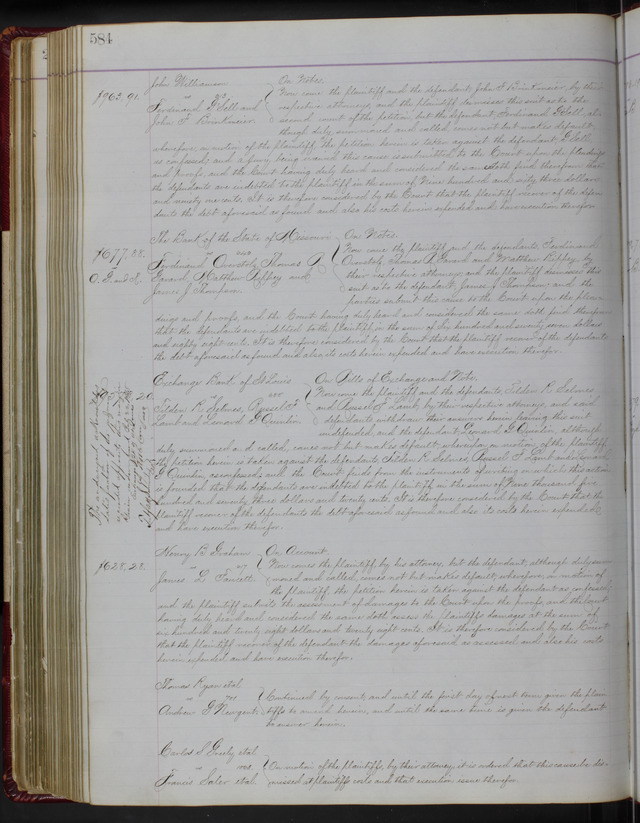 584
John Williamson On Notes.
$963.91. " vs Now come the plaintiff and the defendant, John F Brinkmeier, by their
Ferdinand G Sell and respective attorneys, and the plaintiff dismisses this suit as to the
John F. Brinkmeier. second count of the petition, but the defendant, Ferdinand G Sell, al-
though duly summoned and called, comes not but makes default;
wherefore, on motion of the plaintiff, the petition herein is taken against the defendant, G Sell
as confessed, and a jury being waived this cause is submitted to the Court upon the pleadings
and proofs, and the Court having duly heard and considered the same doth find therefrom that
the defendants are indebted to the plaintiff in the sum of Nine hundred and sixty three dollars
and ninety one cents. It is therefore considered by the Court that the plaintiff recover of the defen-
dants the debt aforesaid as found and also his costs herein expended and have execution therefor.
The Bank of the State of Missouri On Notes.
$677.88. vs Now come the plaintiff and the defendants, Ferdinand
Ferdinand Overstolz, Thomas R
Overstolz, Thomas R Gerard and Matthew Rippey by
Gerard, Matthew Rippey and their respective attorneys and the plaintiff dismisses this
James J Thompson suit as to the defendant, James J Thompson, and the
parties submit this cause to the Court upon the plea-
dings and proofs, and the Court having duly heard and considered the same doth find therefrom
that the defendants are indebted to the plaintiff in the sum of Six hundred and seventy seven dollars
and eighty eight cents. It is therefore considered by the Court that the plaintiff recover of the defendants
the debt aforesaid as found and also its costs herein expended and have execution therefor.
Exchange Bank of St Louis On Bills of Exchange and Note.
vs Now come the plaintiff and the defendants, Tilden R. Selmes
Tilden R. Selmes, Russel F and Russel F Lamb, by their respective attorneys, and said
Lamb and Leonard G Quinlin defendants withdraw their answer herein leaving this suit
undefended, and the defendant, Leonard G Quinlin, although
duly summoned and called, comes not but makes default; wherefore, on motion of the plaintiff,
the petition herein is taken against the defendants, Tilden R. Selmes, Russel F Lamb and Leonard
G Quinlin as confessed, and the Court finds from the instruments of writing on which this action
is founded that the defendants are indebted to the plaintiff in the sum of Nine thousand five
hundred and seventy three dollars and twenty cents. It is therefore considered by the Court that the
plaintiff recover of the defendants the debt aforesaid as found and also its costs herein expended
and have execution therefor.
Henry B. Graham On Account.
$628.28. " vs Now comes the plaintiff, by his attorney, but the defendant, although duly sum-
James L. Faucett moned and called, comes not but makes default; wherefore, on motion of
the plaintiff, the petition herein is taken against the defendant as confessed,
and the plaintiff submits the assessment of damages to the Court upon the proofs, and the Court
having duly heard and considered the same doth assess the plaintiff's damages at the sum of
six hundred and twenty eight dollars and twenty eight cents. It is therefore considered by the Court
that the plaintiff recover of the defendant the damages aforesaid as assessed and also his costs
herein expended and have execution therefor.
Thomas Ryan et al
" vs Continued by consent, and until the first day of next term given the plain-
Andrew G Nugent. tiffs to amend herein, and until the same time is given the defendant
to answer herein.
Carlos S Greely et al
" vs. On motion of the plaintiffs, by their attorney, it is ordered that this cause be dis-
Francis Saler et al missed at plaintiffs costs and that execution issue therefor.